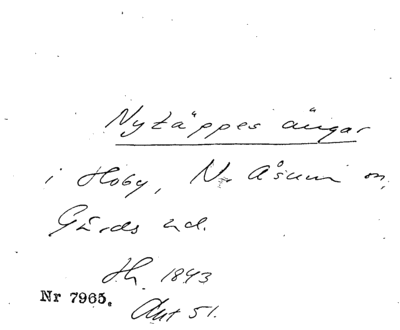 Nytäppes ängar
i Hoby, N. Åsum sn,
Gärds hd.
Hh. 1843
Nr 7965.
Akt 51.